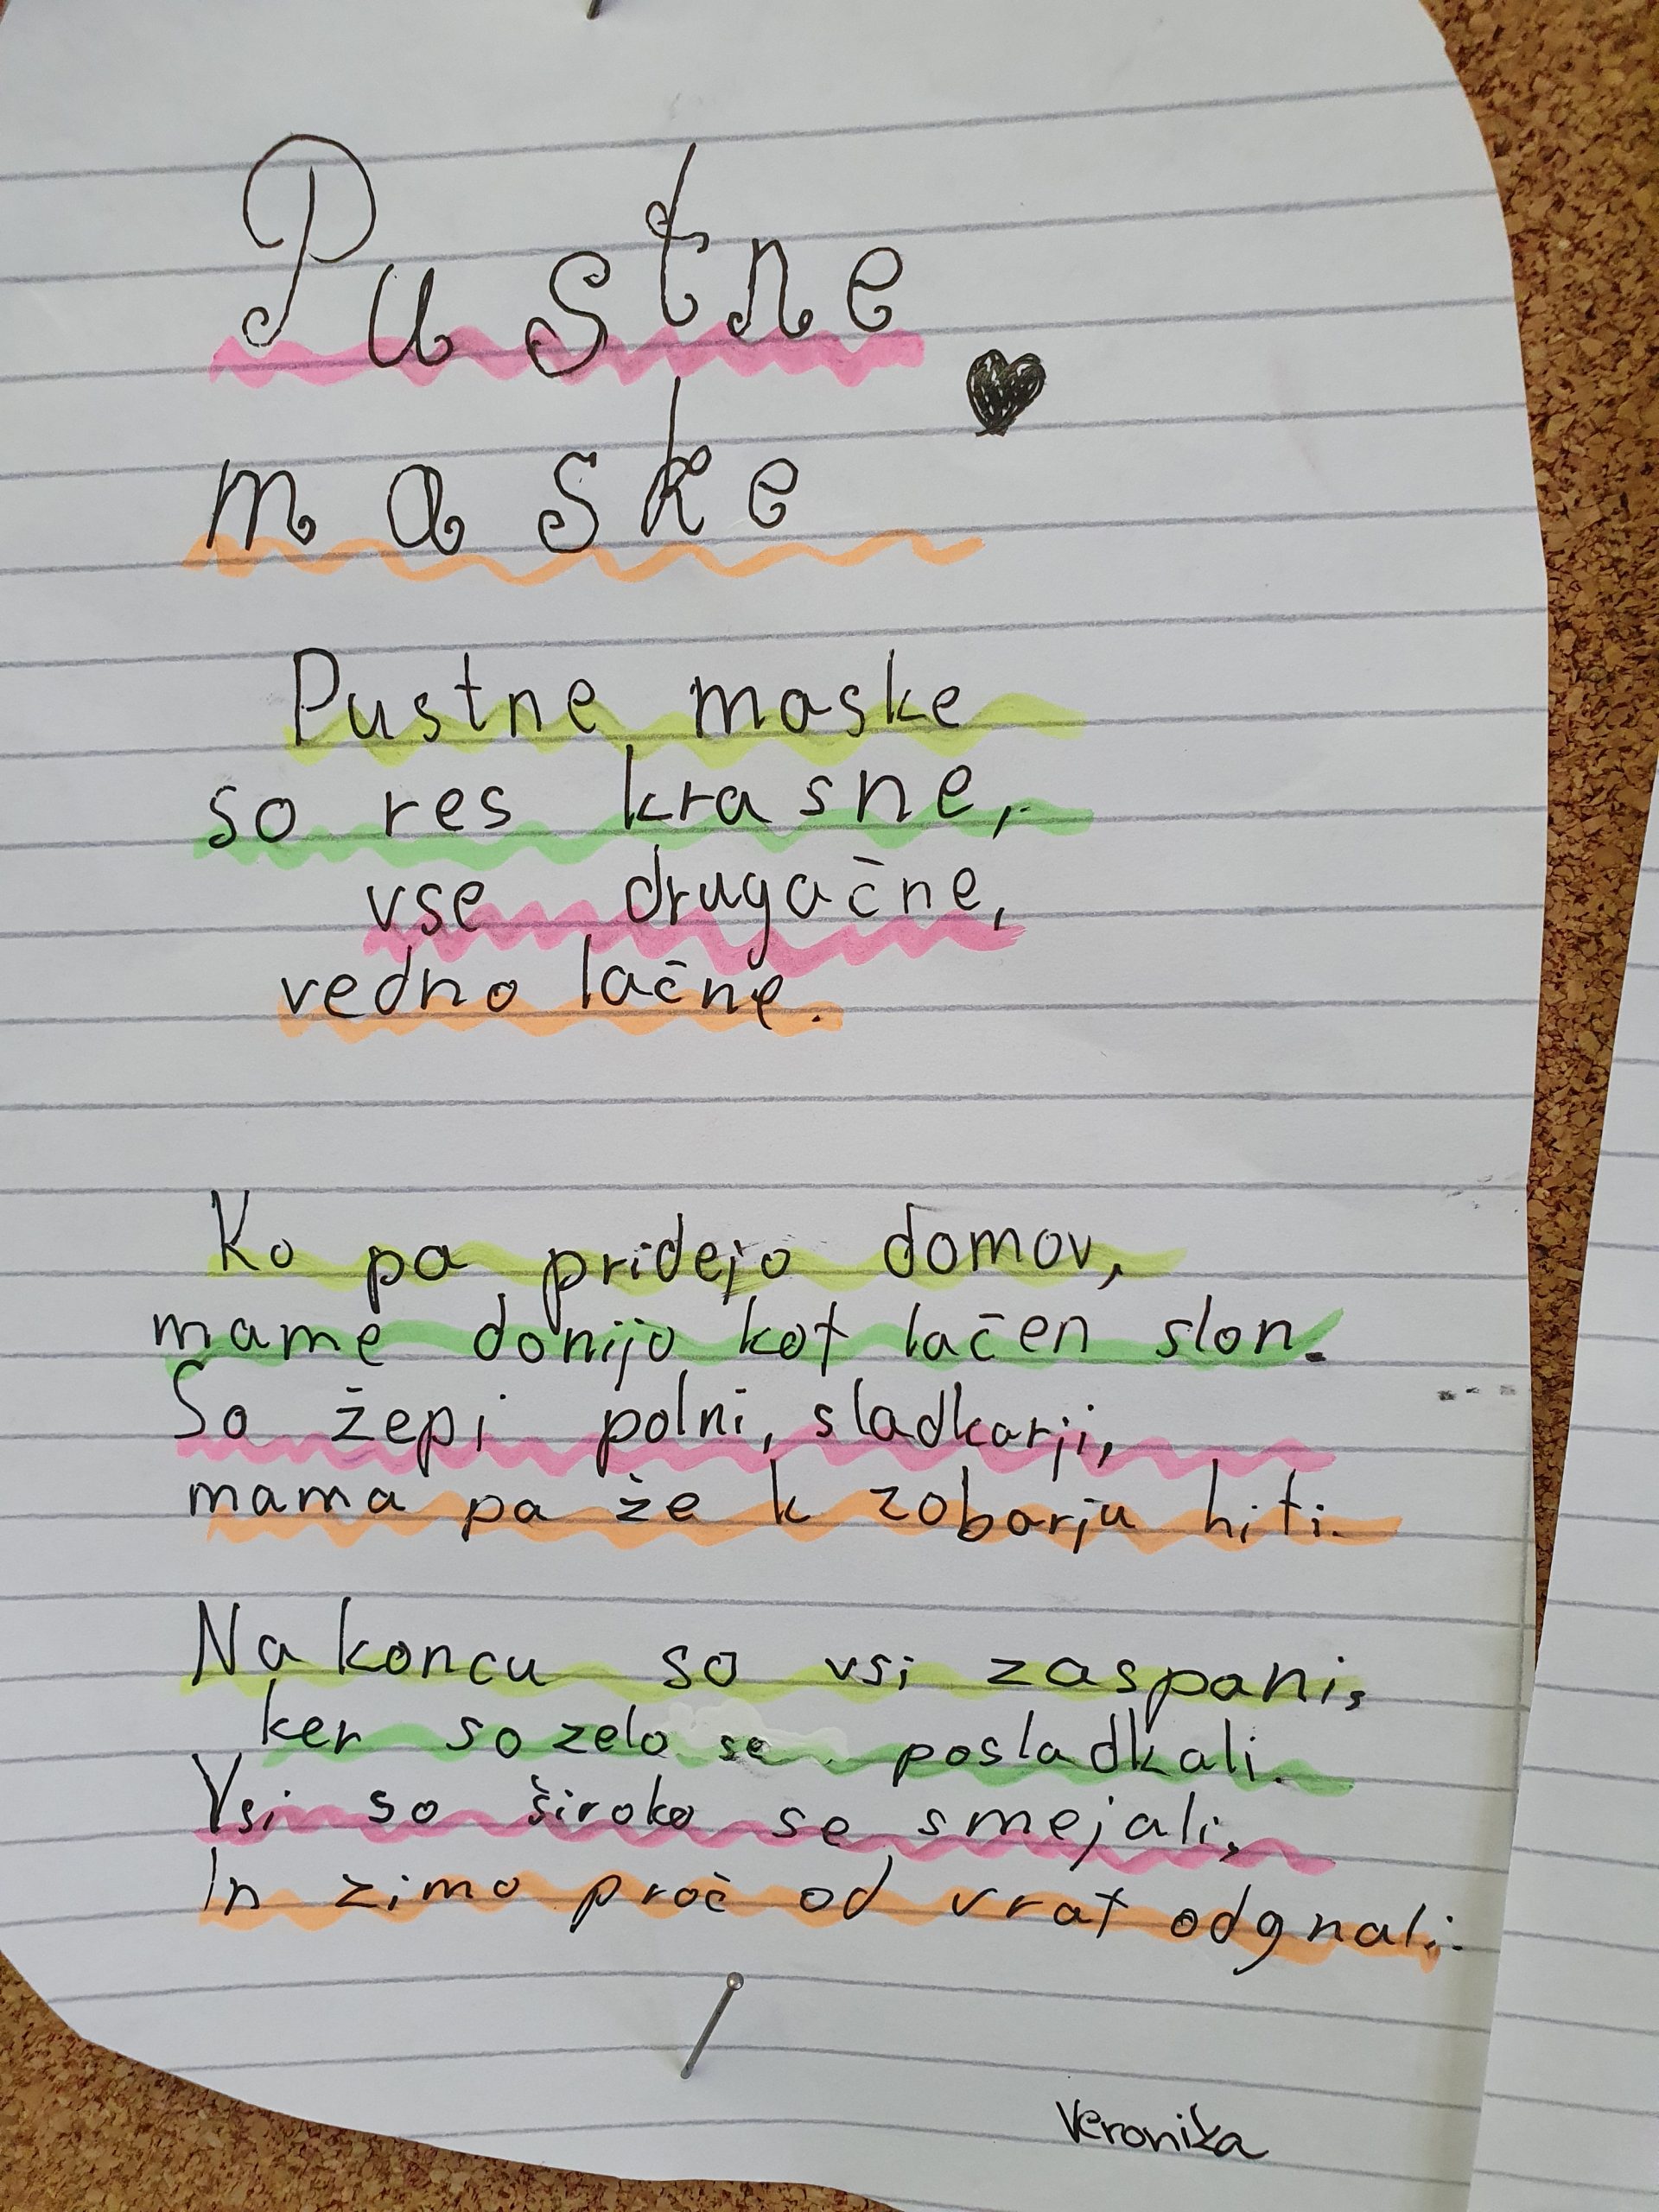 Pustne
maske
Pustne maske
so res krasne,
vse drugačne,
vedno lačne.
Ko pa pridejo domov,
mame donijo kot lačen slon.
So žepi polni, sladkarji,
mama pa že k zobarju hiti.
Na koncu so vsi zaspani,
ker so zelo se posladkali.
Vsi so široko se smejali,
In zimo proč od vrat odgnali.
Veronika